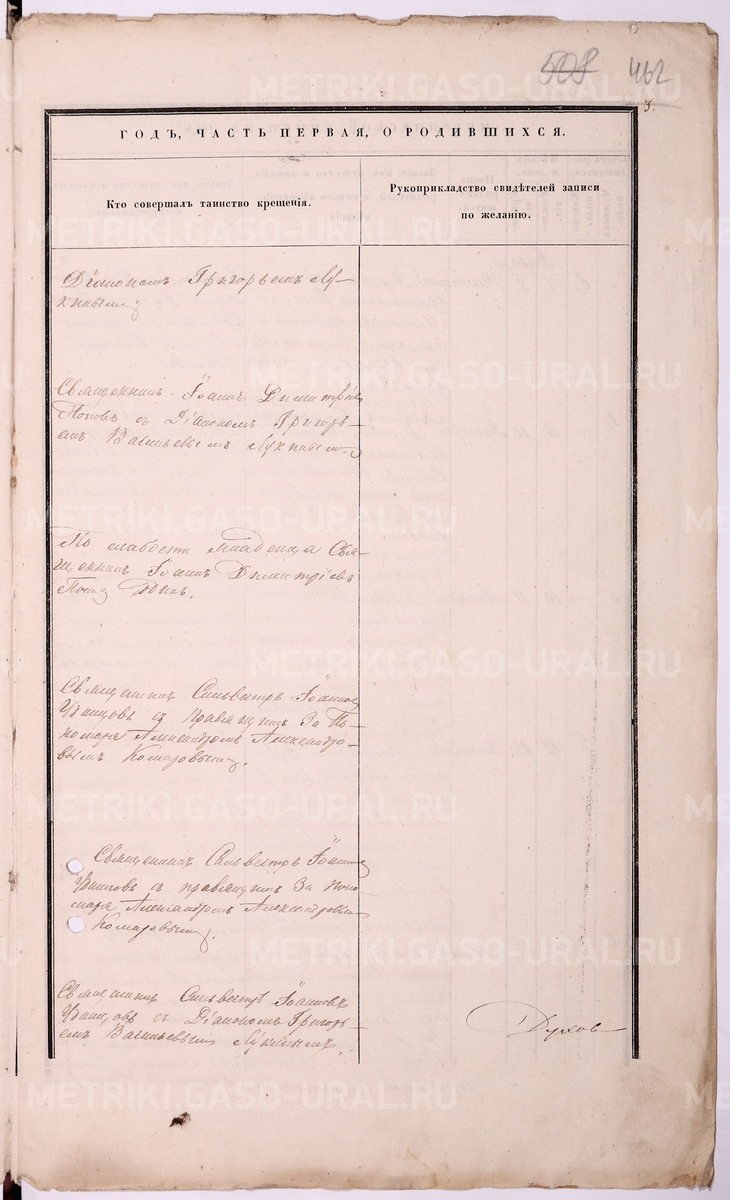 508 462
3.
ГОДЪ, ЧАСТЬ ПЕРВАЯ, О РОДИВШИХСЯ.
Кто совершалъ таинство крещенія.
Рукоприкладство свидѣтелей записи
по желанію.
Діакономъ Григорьемъ Лу-
кинымъ
Священникъ Іоаннъ Димитріе
Поповъ съ Діакономъ Григорь-
емъ Васильевымъ Лукинымъ.
По слабости младенца Свя-
щенникъ Іоаннъ Димитріевъ
Попо Одинъ.
Священникъ Сильвестръ Іоанно
съ правящимъ За По-
номаря Александромъ Александро-
вымъ Комаровымъ.
Священникъ Сильвестръ Іоанно
съ правящимъ За поно
маря Александромъ Александровым
Комаровымъ.
Священникъ Сильвестръ Іоанновъ
съ Діакономъ Григорь-
емъ Васильевымъ Лукинымъ.
Духов
METRIKI.GASO-URAL.RU